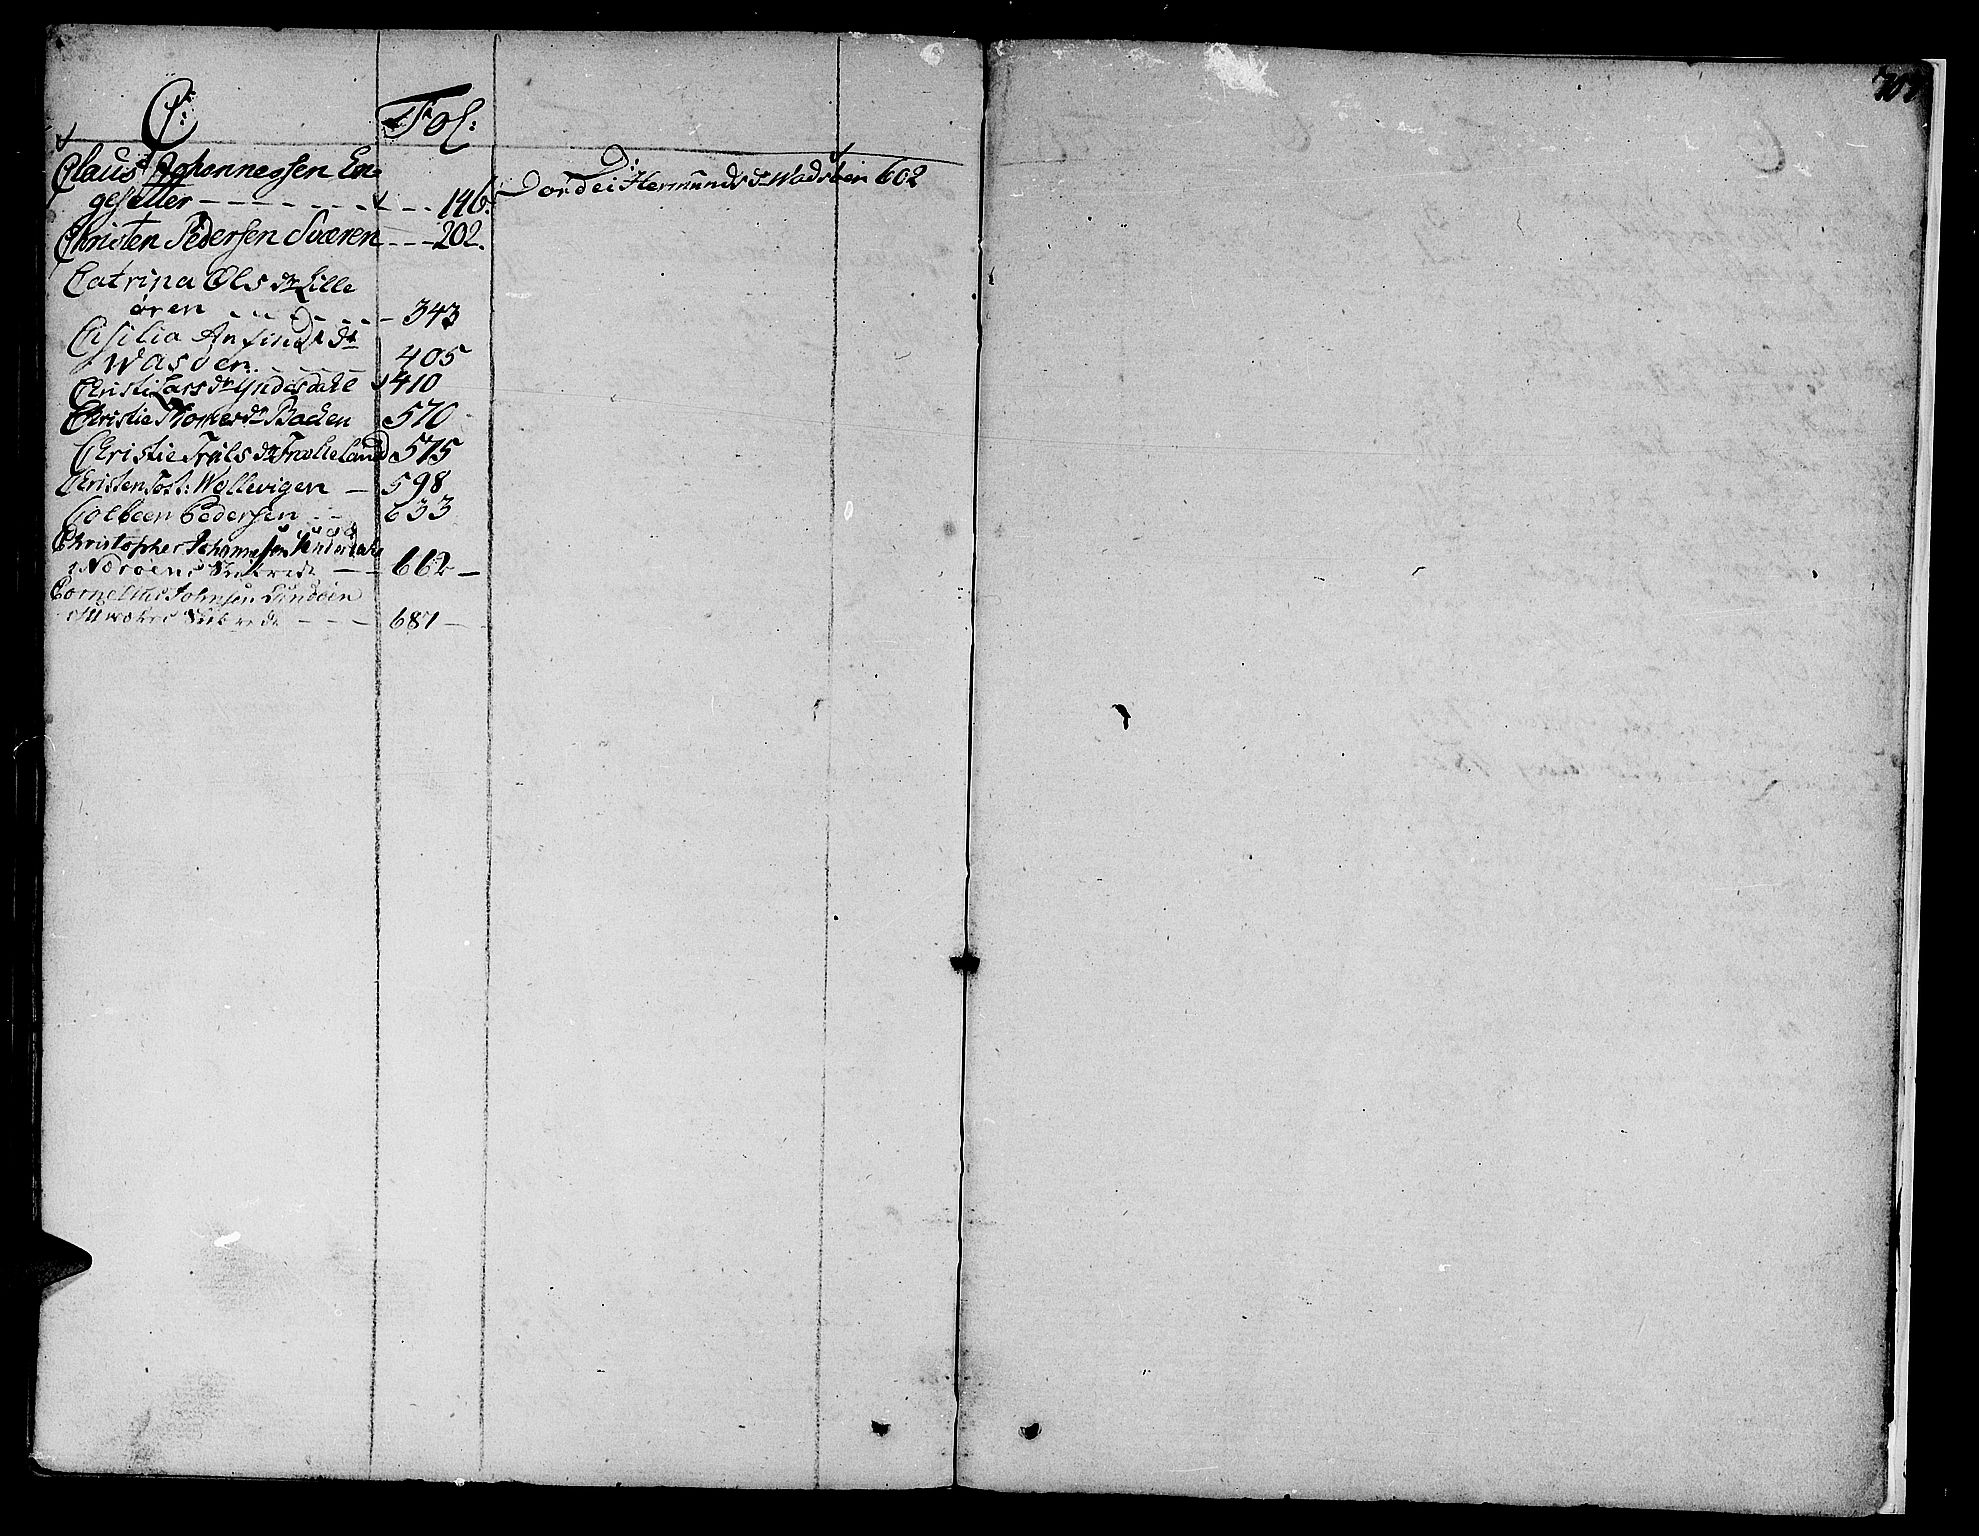 C:
Fol:
Claus Johannessen En-
gesetter - - - - - - - - - 146.
Christen Pedersen Sværen - - - 202.
Catrina Ols dr Lille
øren - - - - - - 343
Cisilia Anfinds dr
Wasden - - - - 405
Christi Lars dr Yndesdahl 410
Christie Thomes dr Backen 570
Christie Trüls dr Trolleland 575
Christen Wollevigen - 598
Colbeen Pedersen - - 633
Christopher Johannessen
Næröens Skibrede - - 662 -
Cornelius Johnsen Sundöin
Skibrede - - - 687 -
D:
Dordei Hermunds dr Wadsöen 602
707